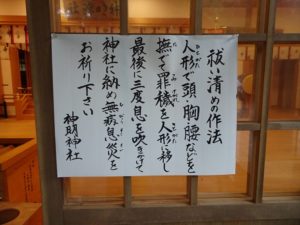 祓い清めの作法
人形で頭・胸・腰などを
撫で罪穢を人形に移し
最後に三度息を吹きかけて
神社に納め無病息災を
お祈り下さい
神明神社